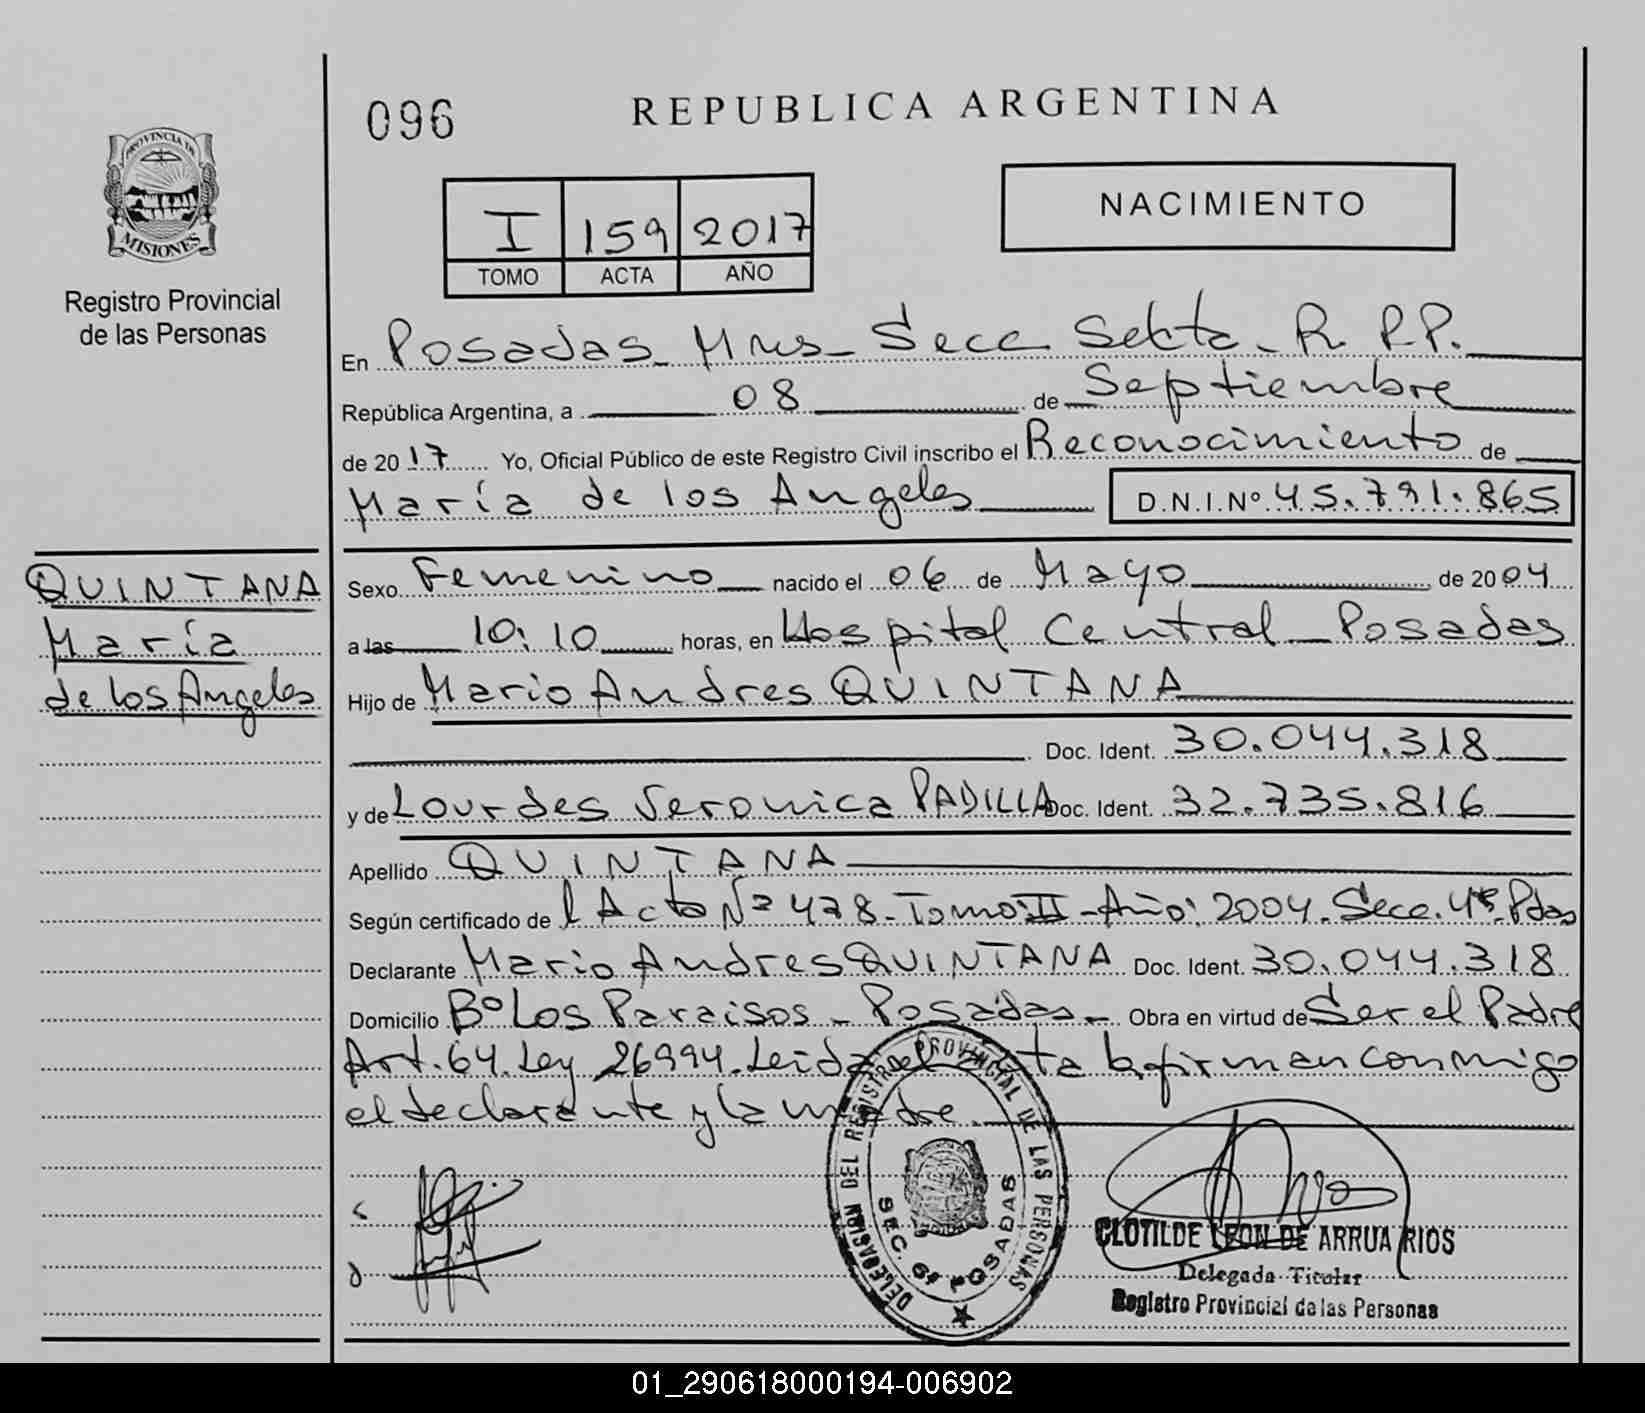 096
REPUBLICA ARGENTINA
PROVINCIA DE
MISIONES
Registro Provincial
de las Personas
I 159 2017
TOMO ACTA AÑO
NACIMIENTO
En Posadas Mnes Secc Sexta - R. P.P.
República Argentina, a 08 de Septiembre
de 2017 Yo, Oficial Público de este Registro Civil inscribo el Reconocimiento de
María de los Angeles D.N.I.Nº 45.791.865
QUINTANA
María
de los Angeles
Sexo Femenino nacido el 06 de Mayo de 2004
a las 10:10 horas, en Hospital Central - Posadas
Hijo de Mario Andres QUINTANA
Doc. Ident. 30.044.318
y de Lourdes Veronica PADILLA Doc. Ident. 32.735.816
Apellido QUINTANA
Según certificado de l Acta Nº 478 - Tomo: II - Año: 2004. Secc. 4º Pdas
Declarante Mario Andres QUINTANA Doc. Ident. 30.044.318
Domicilio Bº Los Paraisos - Posadas - Obra en virtud de Ser el Padre
Art. 64. Ley 26994. Leida el acta la firman conmigo
el declarante y la madre.
DELEGACION DEL REGISTRO PROVINCIAL DE LAS PERSONAS
SEC. 6ª POSADAS
CLOTILDE LEON DE ARRUA RIOS
Delegada Titular
Registro Provincial de las Personas
01_290618000194-006902